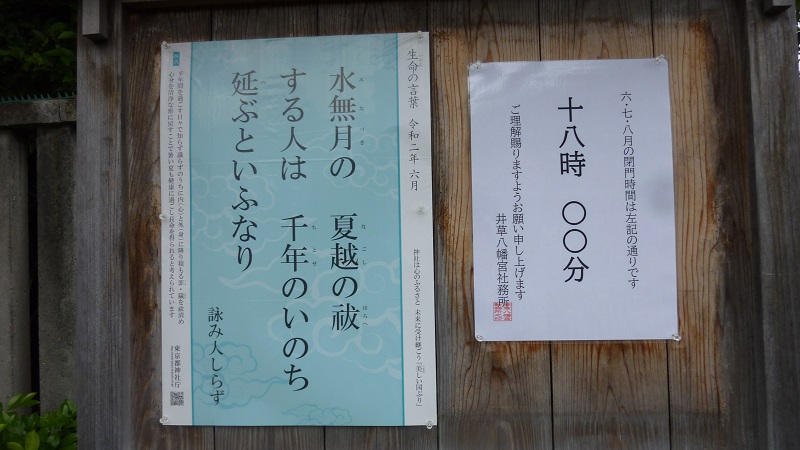 六・七・八月の閉門時間は左記の通りです
十八時 〇〇分
ご理解賜りますようお願い申し上げます
井草八幡宮社務所
生命の言葉 令和二年 六月
神社は心のふるさと 未来に受け継ごう「美しい国ぶり」
水無月の 夏越の祓
みなづき なごし はらへ
する人は 千年のいのち
ちとせ
延ぶといふなり
の
詠み人しらず
東京都神社庁